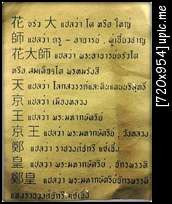 花 จรัว 大 แปลว่า ใต หรือ ใหญ่
師 แปลว่า ครู - อาจารย์ , ผู้เชี่ยวชาญ
花大師 แปลว่า พระอาจารย์จรัวใต
หรือ สมเด็จ
天 แปลว่า โลกสวรรค์และดินแดนบริสุทธิ์
京 แปลว่า เมืองหลวง
王 แปลว่า พระมหากษัตริย์
京王 แปลว่า พระมหากษัตริย์ , วังหลวง
鄭 แปลว่า ราชวงค์แซ่เอ็ง
皇 แปลว่า พระมหากษัตริย์ , จักรพรรดิ
鄭皇 แปลว่า พระมหากษัตริย์จักรพรรดิ
[720x954] upic.me